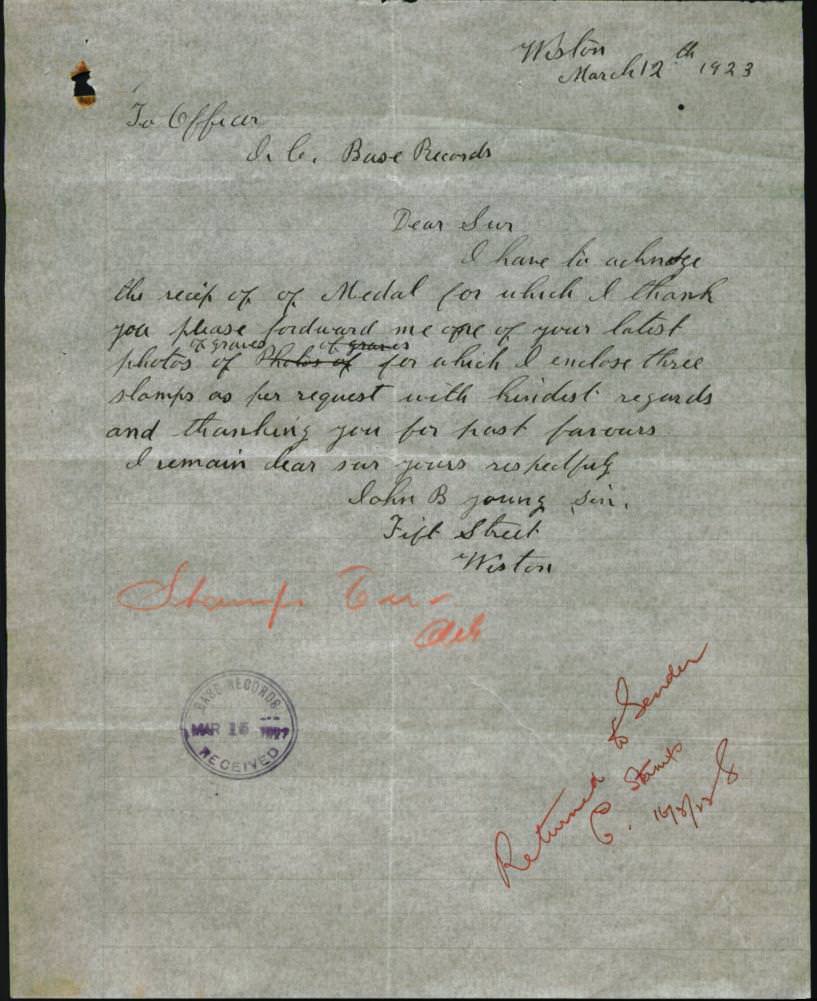 Weston
March 12th 1923
To Officer
I. C. Base Records
Dear Sur
I have to acknoge
the recip of of Medal for which I thank
you please fordward me one of your latest
of graves of graves
photos of Photos of for which I enclose three
stamps as per request with kindest regards
and thanking you for past favours
I remain dear sur yours respectfuly
John B young Sin.
Fift Street
Weston
Stamps
BASE RECORDS
MAR 15
RECEIVED
Returned to Sender
Stamps